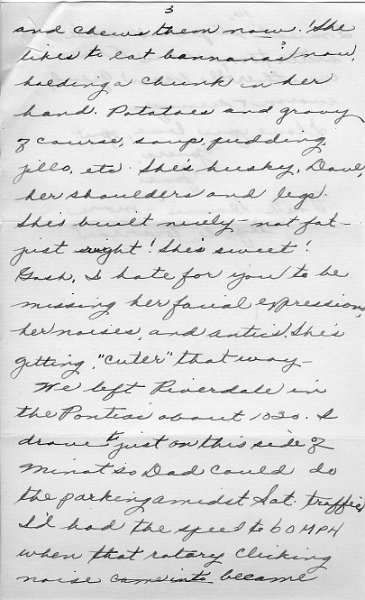 3
and chews them now! She
likes to eat bannanas now,
holding a chunk in her
hand. Potatoes and gravy
of course, soup, pudding,
jello, etc. She's husky, Dave,
her shoulders and legs.
She's built nicely - not fat -
just right! She's sweet!
Gosh, I hate for you to be
missing her facial expressions,
her noises, and antics. She's
getting "cuter" that way -
We left Riverdale in
the Pontiac about 1030. I
drove to just on this side of
Minot so Dad could do
the parking amidst Sat. traffic.
I'd had the speed to 60 MPH
when that rotary clicking
noise came into became